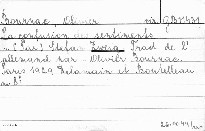 Bournac, Olivier viz GB 1431
La confusion des sentiments
... (Par) Stefan Zweig. Trad. de l'
allemand par Olivier Bournac.
Paris 1929, Delamain et Boutelleau
8°